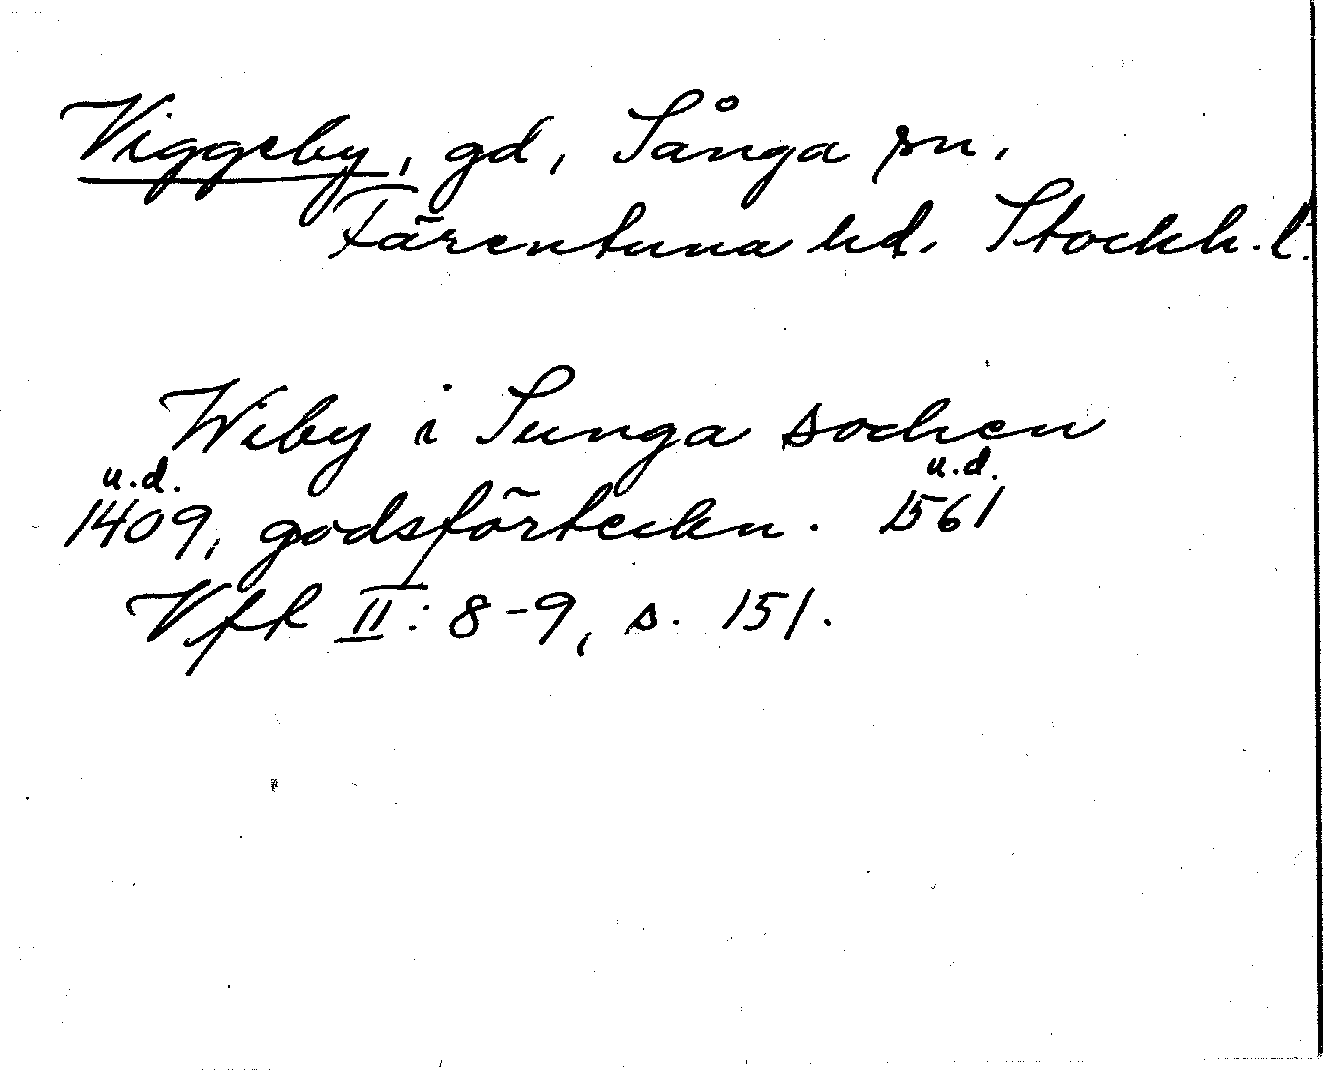 Viggeby, gd, Sånga sn,
Färentuna hd. Stockh. l.
Wiby i Sunga sochen
u.d. u.d.
1409, godsförteckn. 1561
VfR II: 8-9, s. 151.